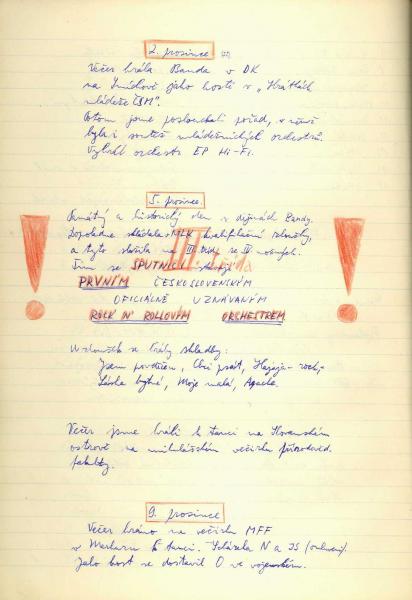 2. prosince
Večer hrála Banda v DK
na Smíchově jako hosté v „Hrátkách
mládeže ČSM".
Potom jsme poslouchali pořad, v němž
byla i soutěž mládežnických orchestrů.
Vyhrál orchestr EP Hi-Fi.
5. prosince.
Památný a historický den v dějinách Bandy.
Dopoledne skládala MLK kvalifikační zkoušky,
a tyto složila na III. třídu ze IV možných.
Tím se SPUTNICI stali
III. třída
PRVNÍM ČESKOSLOVENSKÝM
OFICIÁLNĚ UZNÁVANÝM
ROCK N' ROLLOVÝM ORCHESTREM
! !
U zkoušek se hrály skladby:
Jsem povděčen, Chci psát, Hajaja-rock,
Láska bytná, Moje malá, Apache.
Večer jsme hráli k tanci na Slovanském
ostrově na mikulášském večírku přírodověd.
fakulty.
9. prosince
Večer hráno na večírku MFF
v Merkuru k tanci. Scházela N a JS (omluveni).
Jako host se dostavil O ve vojenském.